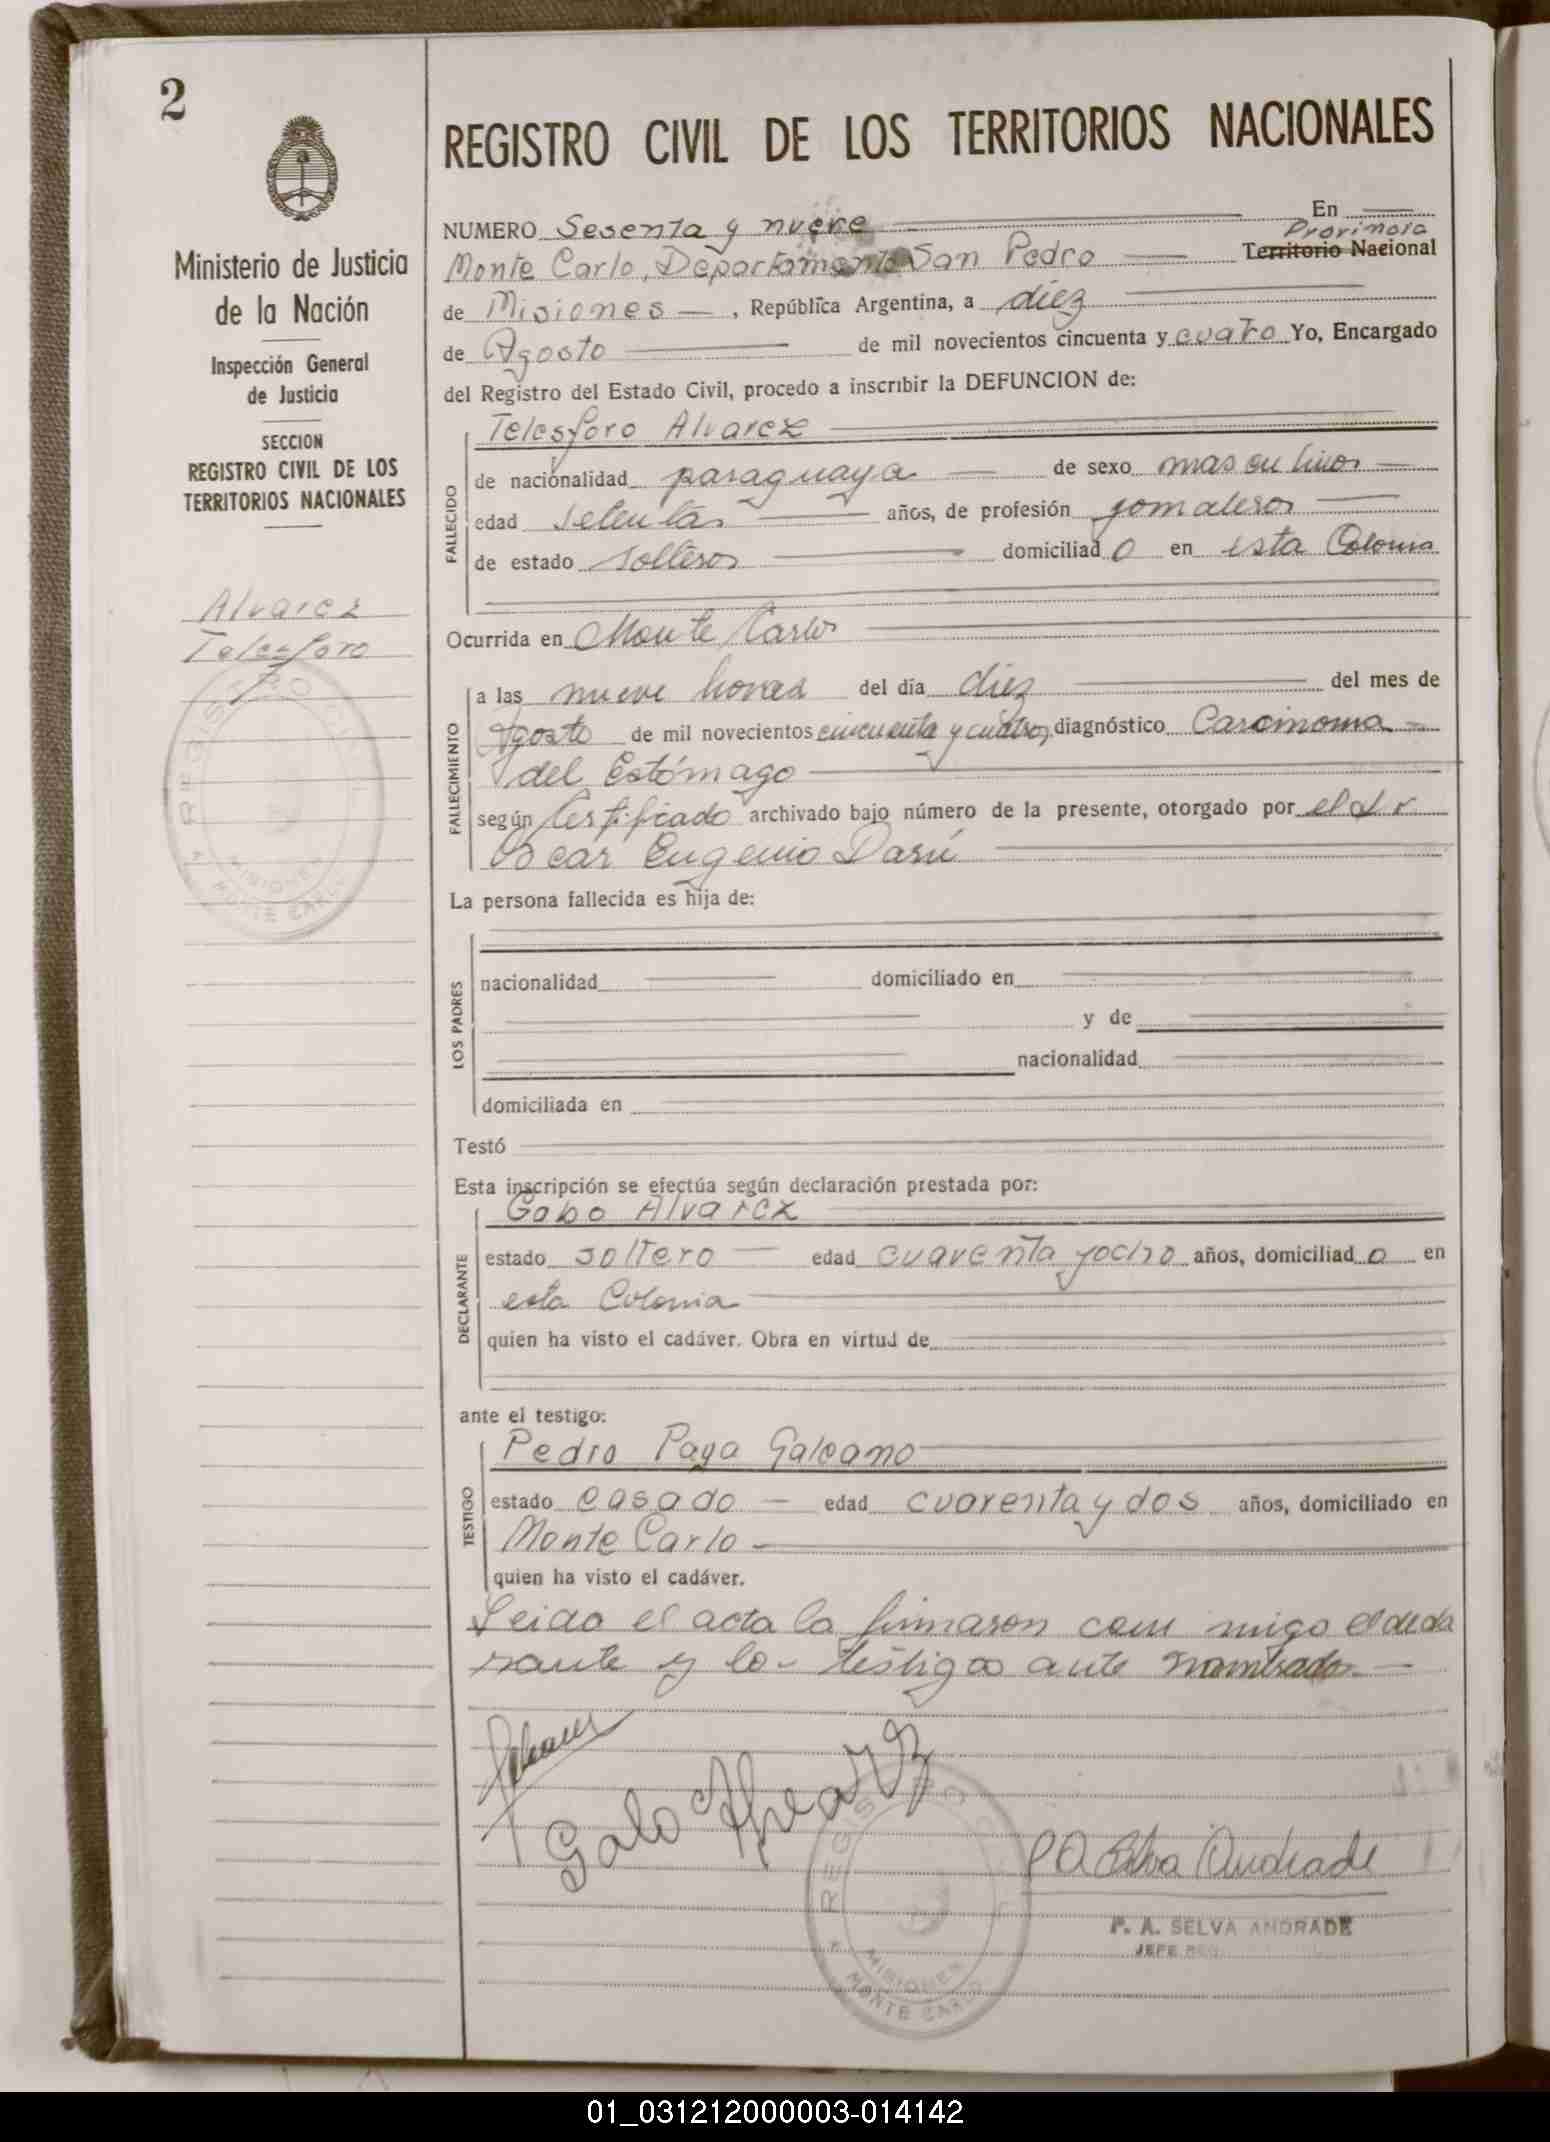 2
REGISTRO CIVIL DE LOS TERRITORIOS NACIONALES
Ministerio de Justicia
de la Nación
Inspección General
de Justicia
SECCION
REGISTRO CIVIL DE LOS
TERRITORIOS NACIONALES
Alvarez
Telesforo
REGISTRO CIVIL
MISIONES
MONTE CARLO
NUMERO Sesenta y nueve En
Provincia
Monte Carlo, Departamento San Pedro Territorio Nacional
de Misiones, República Argentina, a diez
de Agosto de mil novecientos cincuenta y cuatro Yo, Encargado
del Registro del Estado Civil, procedo a inscribir la DEFUNCION de:
FALLECIDO
Telesforo Alvarez
de nacionalidad paraguaya de sexo masculino
edad setenta años, de profesión jornalero
de estado soltero domiciliado en esta Colonia
Ocurrida en Monte Carlo
FALLECIMIENTO
a las nueve horas del día diez del mes de
Agosto de mil novecientos cincuenta y cuatro, diagnóstico Carcinoma
del Estómago
según Certificado archivado bajo número de la presente, otorgado por el dr
Oscar Eugenio Darú
La persona fallecida es hija de:
LOS PADRES
nacionalidad domiciliado en
y de
nacionalidad
domiciliada en
Testó
Esta inscripción se efectúa según declaración prestada por:
DECLARANTE
Gabo Alvarez
estado soltero edad cuarenta y ocho años, domiciliado en
esta Colonia
quien ha visto el cadáver. Obra en virtud de
ante el testigo:
TESTIGO
Pedro Paya Galeano
estado casado edad cuarenta y dos años, domiciliado en
Monte Carlo
quien ha visto el cadáver.
Leida el acta la firmaron con migo el decla
rante y lo- testigos ante nombrados
Galo Alvarez
REGISTRO CIVIL
MISIONES
MONTE CARLO
P A Selva Andrade
P. A. SELVA ANDRADE
JEFE REG
01_031212000003-014142